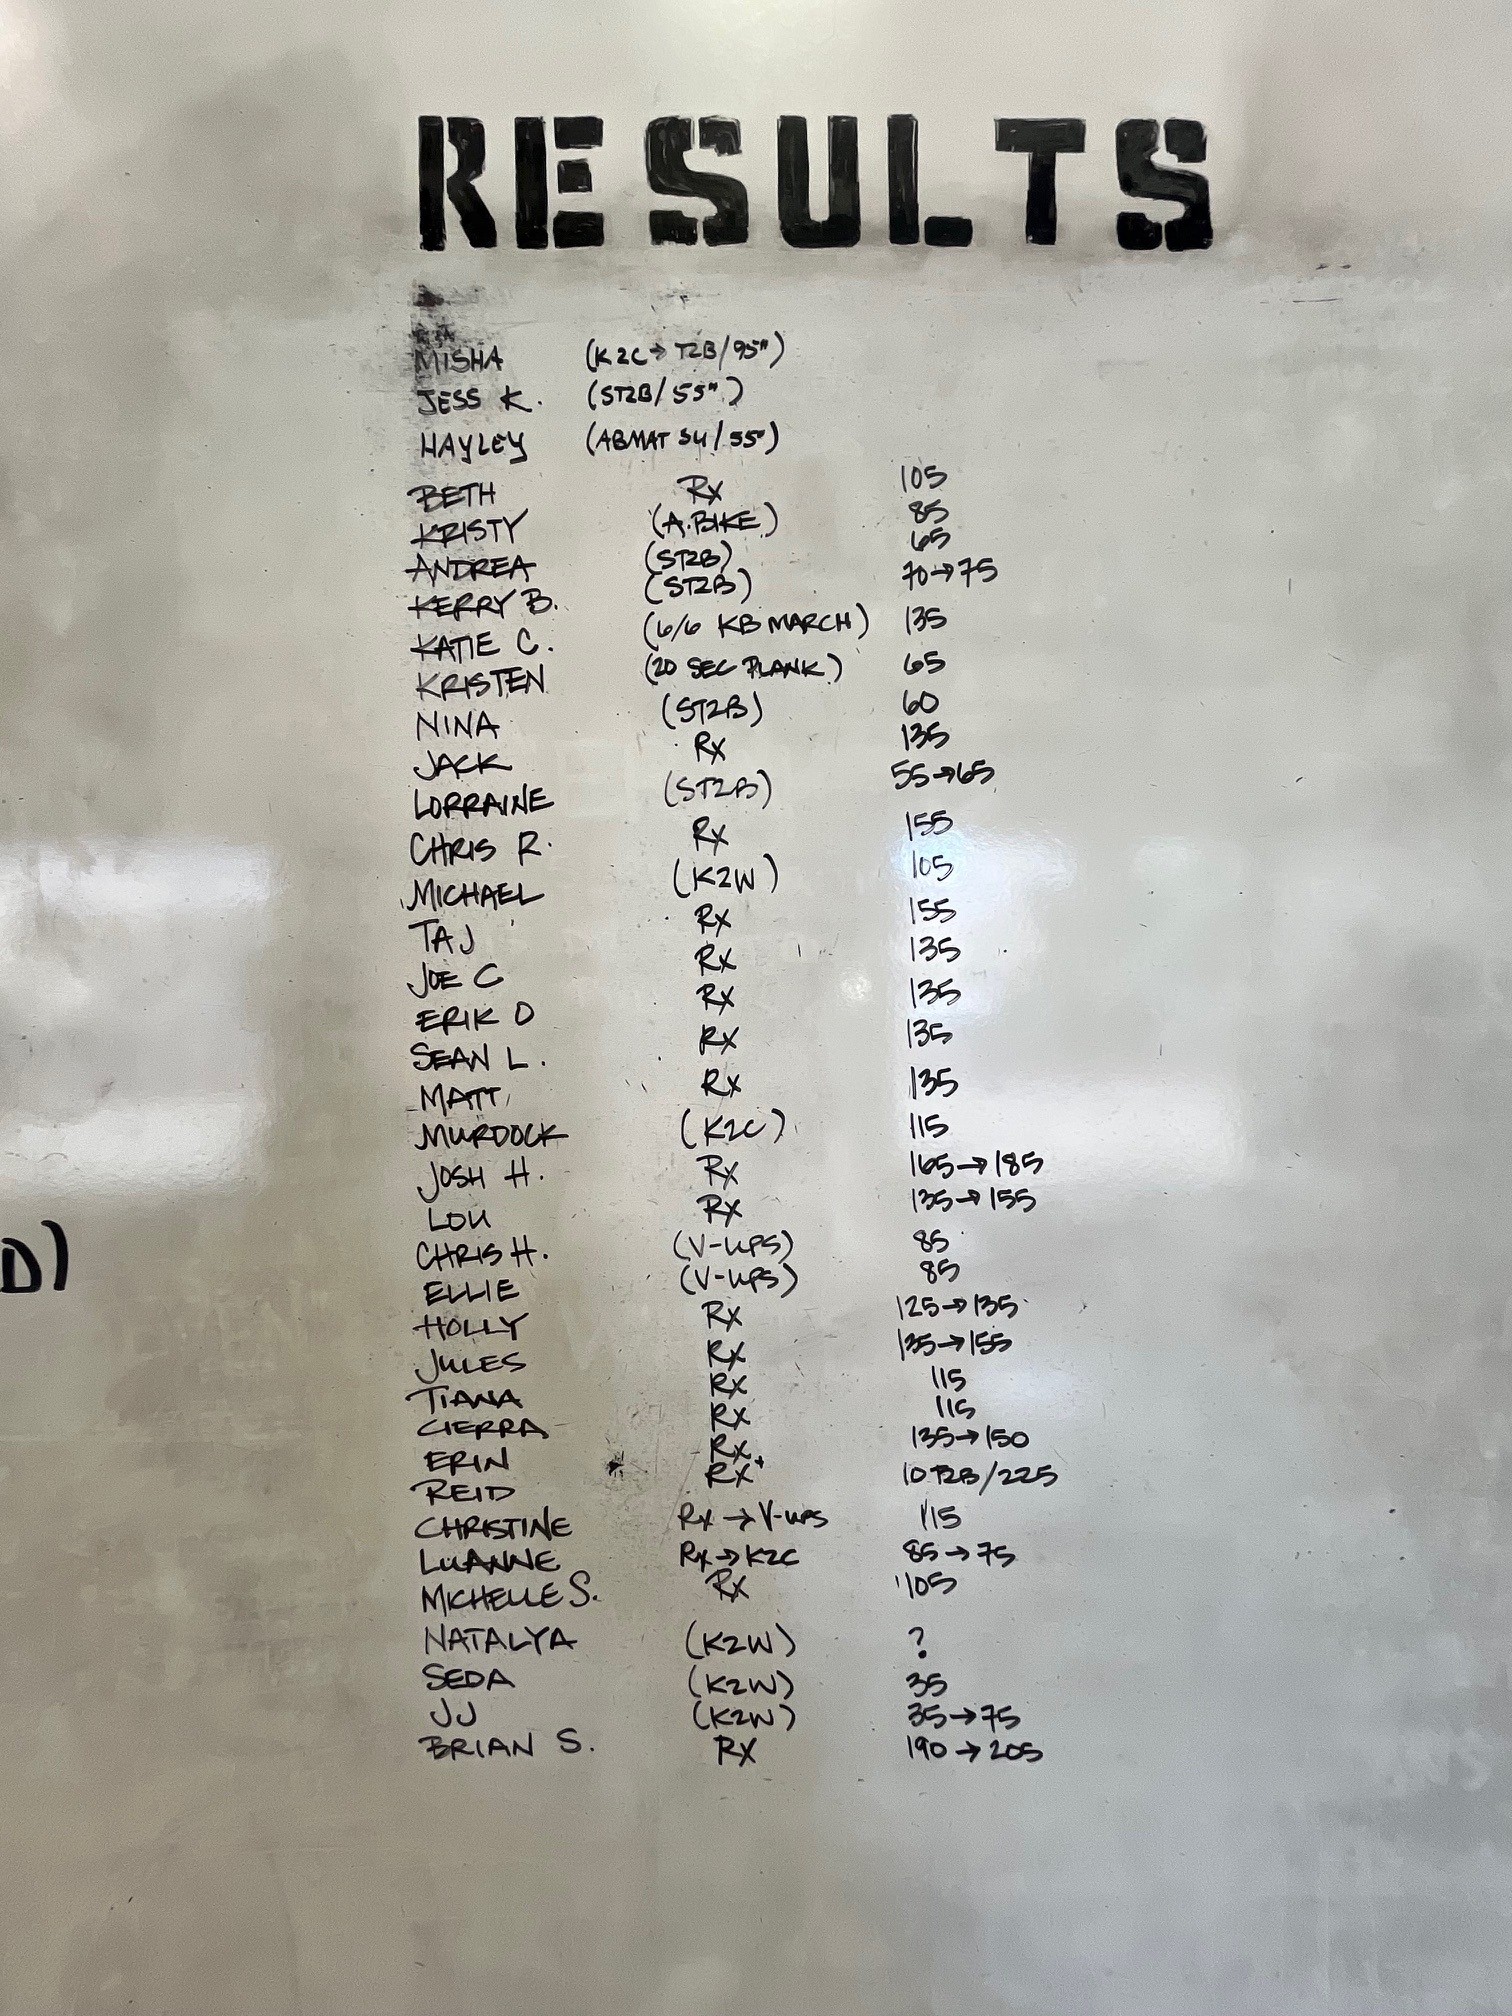 RESULTS
MISHA (K2C→T2B/95#)
JESS K. (ST2B/55#)
HAYLEY (ABMAT SU/55#)
BETH Rx 105
KRISTY (A.BIKE) 85
ANDREA (ST2B) 65
KERRY B. (ST2B) 70→75
KATIE C. (6/6 KB MARCH) 135
KRISTEN (20 SEC PLANK) 65
NINA (ST2B) 60
JACK Rx 135
LORRAINE (ST2B) 55→65
CHRIS R. Rx 155
MICHAEL (K2W) 105
TAJ Rx 155
JOE C Rx 135
ERIK D Rx 135
SEAN L. Rx 135
MATT Rx 135
MURDOCK (K2C) 115
JOSH H. Rx 165→185
LOU Rx 135→155
CHRIS H. (V-UPS) 85
D)
ELLIE (V-UPS) 85
HOLLY Rx 125→135
JULES Rx 135→155
TIANA Rx 115
CIERRA Rx 115
ERIN Rx 135→150
REID Rx+ 10 T2B/225
CHRISTINE Rx→V-UPS 115
LUANNE Rx→K2C 85→75
MICHELLE S. Rx 105
NATALYA (K2W) ?
SEDA (K2W) 35
JJ (K2W) 35→75
BRIAN S. RX 190→205